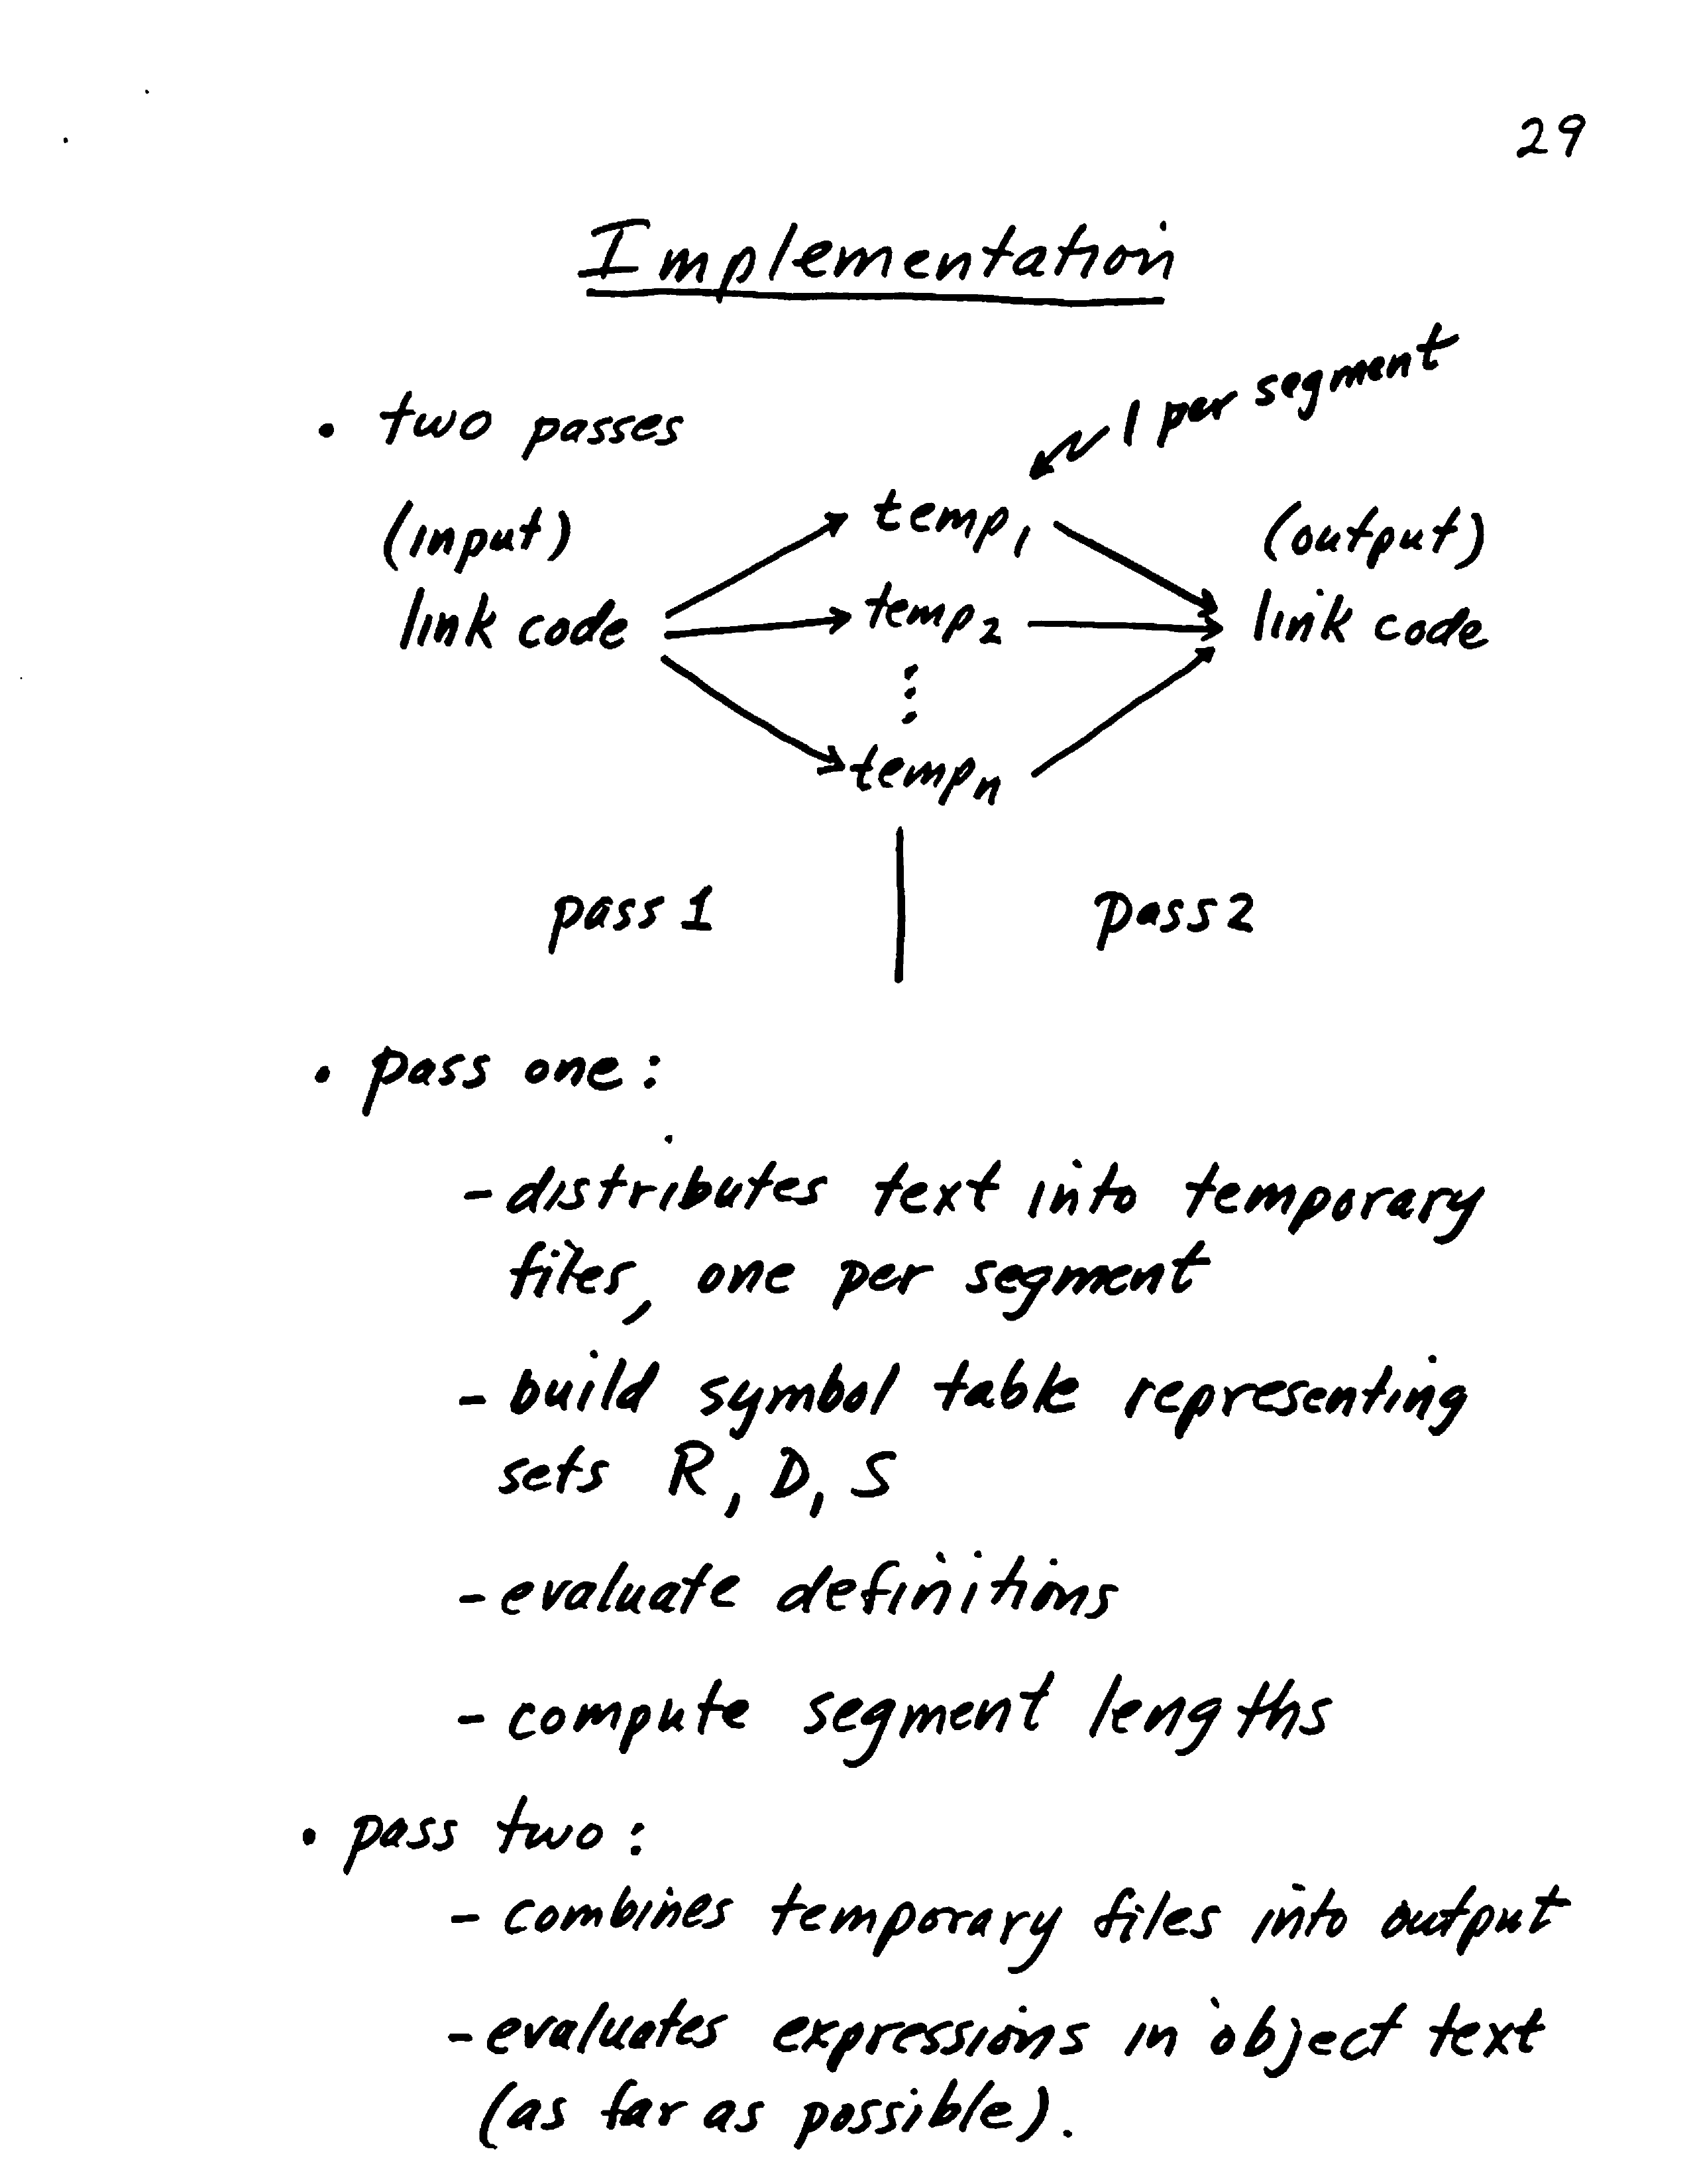 29
Implementation
• two passes
1 per segment
(input)
temp1
(output)
link code
temp2
link code
⋮
tempn
pass 1
pass 2
• pass one:
- distributes text into temporary
files, one per segment
- build symbol table representing
sets R, D, S
- evaluate definitions
- compute segment lengths
• pass two:
- combines temporary files into output
- evaluates expressions in object text
(as far as possible).